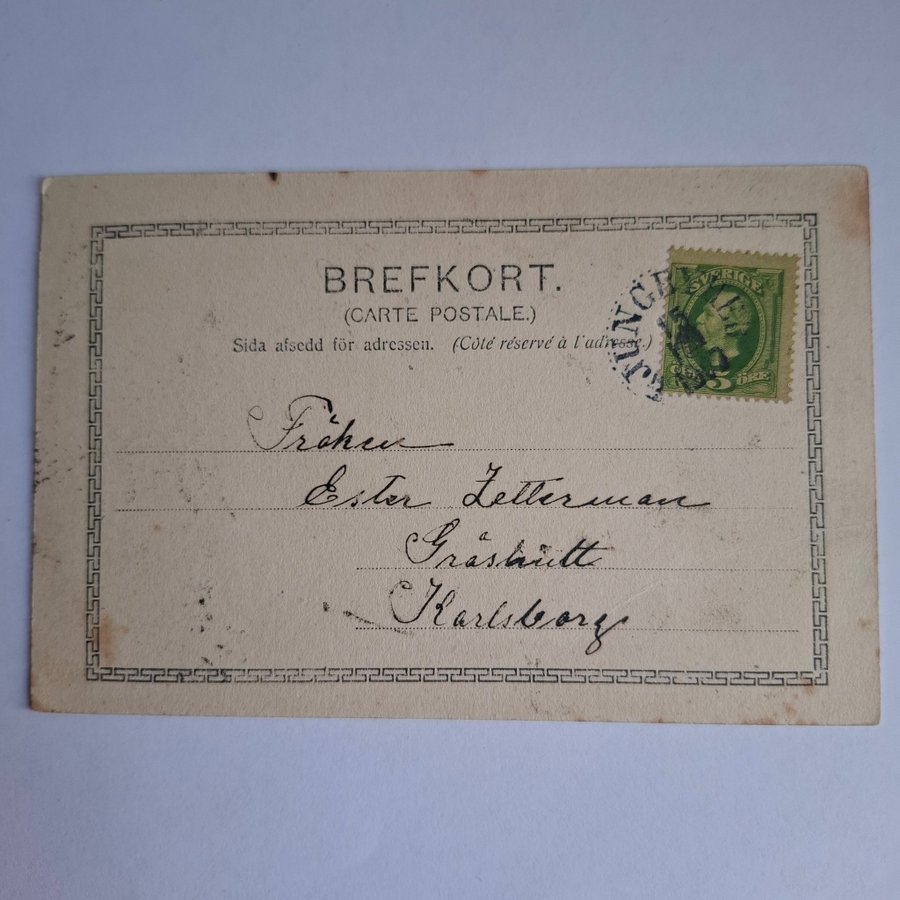 BREFKORT.
(CARTE POSTALE.)
Sida afsedd för adressen. (Côté réservé à l'adresse.)
SVERIGE
5 ÖRE
Fröken
Ester Zetterman
Gräshult
Karlsborg